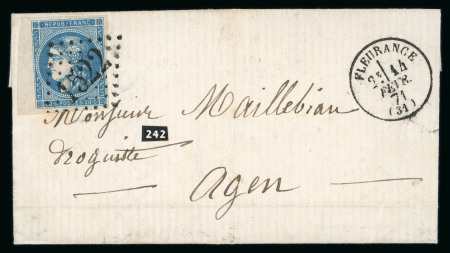 REPUB. FRANC.
1522
FLEURANCE
14
FEVR.
71
(31)
Monsieur Maillebiau
242
droguiste
Agen